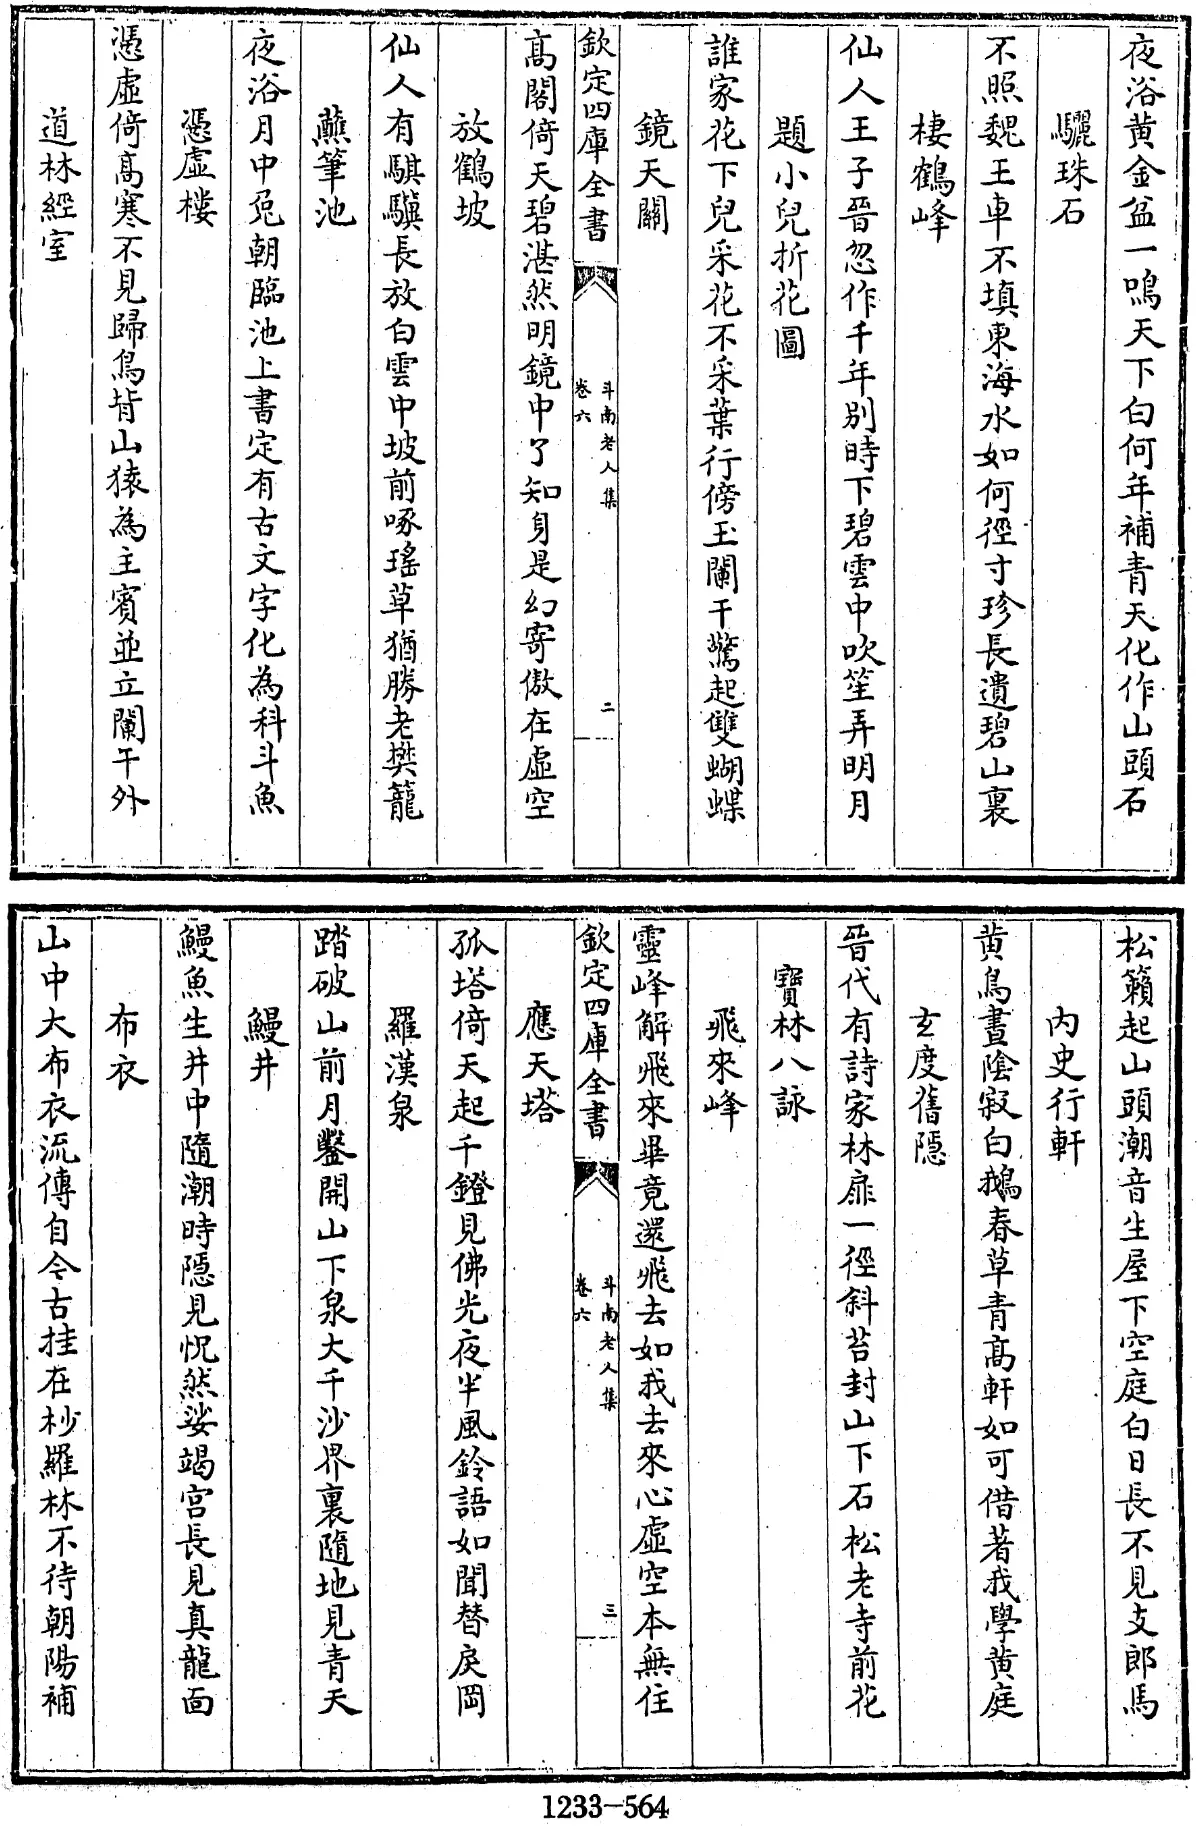 夜浴黄金盆一鳴天下白何年補青天化作山頭石
驪珠石
不照魏王車不填東海水如何徑寸珍長遺碧山裏
棲鶴峰
仙人王子晉忽作千年别時下碧雲中吹笙弄明月
題小兒折花圖
誰家花下兒采花不采葉行傍玉闌干驚起雙蝴蝶
鏡天閣
欽定四庫全書
斗南老人集
卷六
二
高閣倚天碧湛然明鏡中了知身是幻寄傲在虛空
放鶴坡
仙人有騏驥長放白雲中坡前啄瑤草猶勝老樊籠
蘸筆池
夜浴月中兔朝臨池上書定有古文字化為科斗魚
憑虛樓
憑虛倚高寒不見歸鳥背山猿為主賓並立闌干外
道林經室
松籟起山頭潮音生屋下空庭白日長不見支郎馬
内史行軒
黄鳥晝陰寂白鵝春草青高軒如可借著我學黄庭
玄度舊隱
晉代有詩家林扉一徑斜苔封山下石松老寺前花
寶林八詠
飛來峰
靈峰解飛來畢竟還飛去如我去來心虛空本無住
欽定四庫全書
斗南老人集
卷六
三
應天塔
孤塔倚天起千鐙見佛光夜半風鈴語如聞替戾岡
羅漢泉
踏破山前月鑿開山下泉大千沙界裏隨地見青天
鰻井
鰻魚生井中隨潮時隱見怳然娑竭宫長見真龍面
布衣
山中大布衣流傳自今古挂在杪羅林不待朝陽補
1233-564